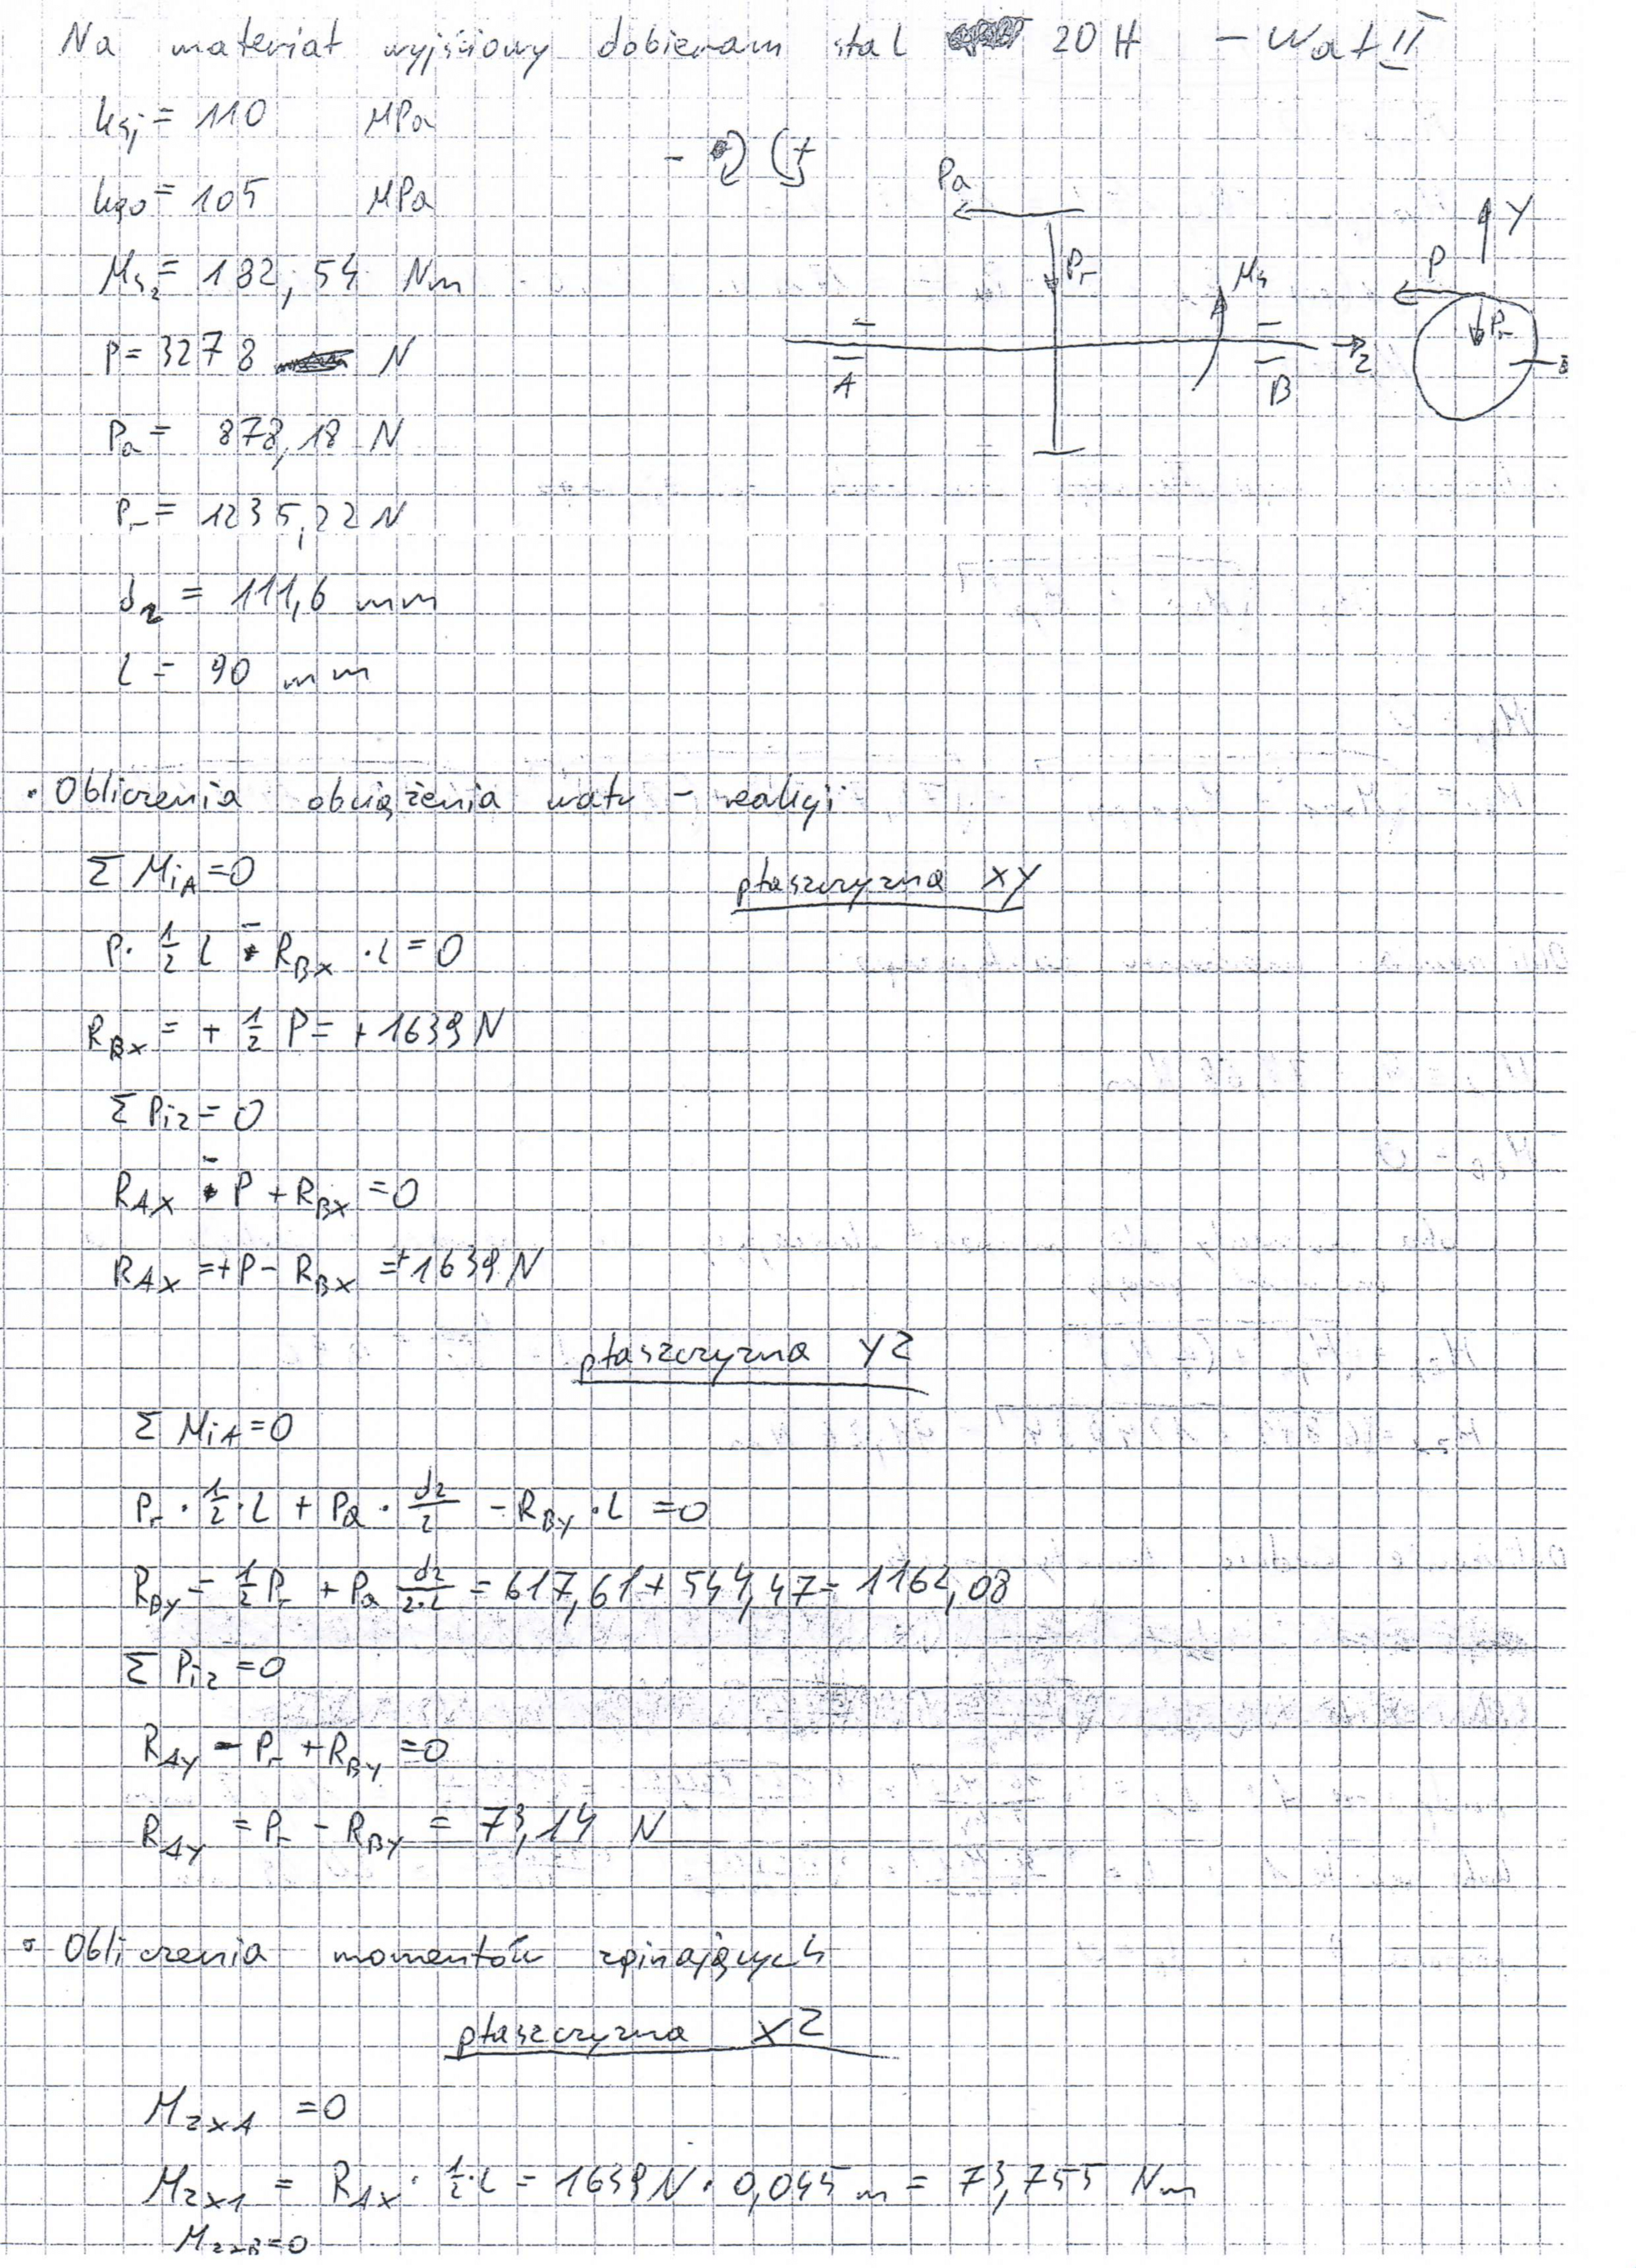 Na materiał wyjściowy dobieram stal 20 H - Wał II
ksj = 110 MPa
kgo = 105 MPa
Ms2 = 182,54 Nm
P = 3278 N
Pa = 878,18 N
Pr = 1235,22 N
d2 = 111,6 mm
l = 90 mm
- +
Pa
Pr
Ms
A
B
Z
Y
P
Pr
• Obliczenia obciążenia wału - reakcji
Σ MiA = 0
płaszczyzna XY
P · 1/2 l - RBX · l = 0
RBX = + 1/2 P = + 1639 N
Σ Piz = 0
RAX - P + RBX = 0
RAX = +P - RBX = +1639 N
płaszczyzna YZ
Σ MiA = 0
Pr · 1/2 · l + Pa · d2/2 - RBY · l = 0
RBY = 1/2 Pr + Pa d2/2·l = 617,61 + 544,47 = 1162,08
Σ Piz = 0
RAY - Pr + RBY = 0
RAY = Pr - RBY = 73,14 N
• Obliczenia momentów zginających
płaszczyzna XZ
MZXA = 0
MZX1 = RAX · 1/2 · l = 1639 N · 0,045 m = 73,755 Nm
MZXB = 0